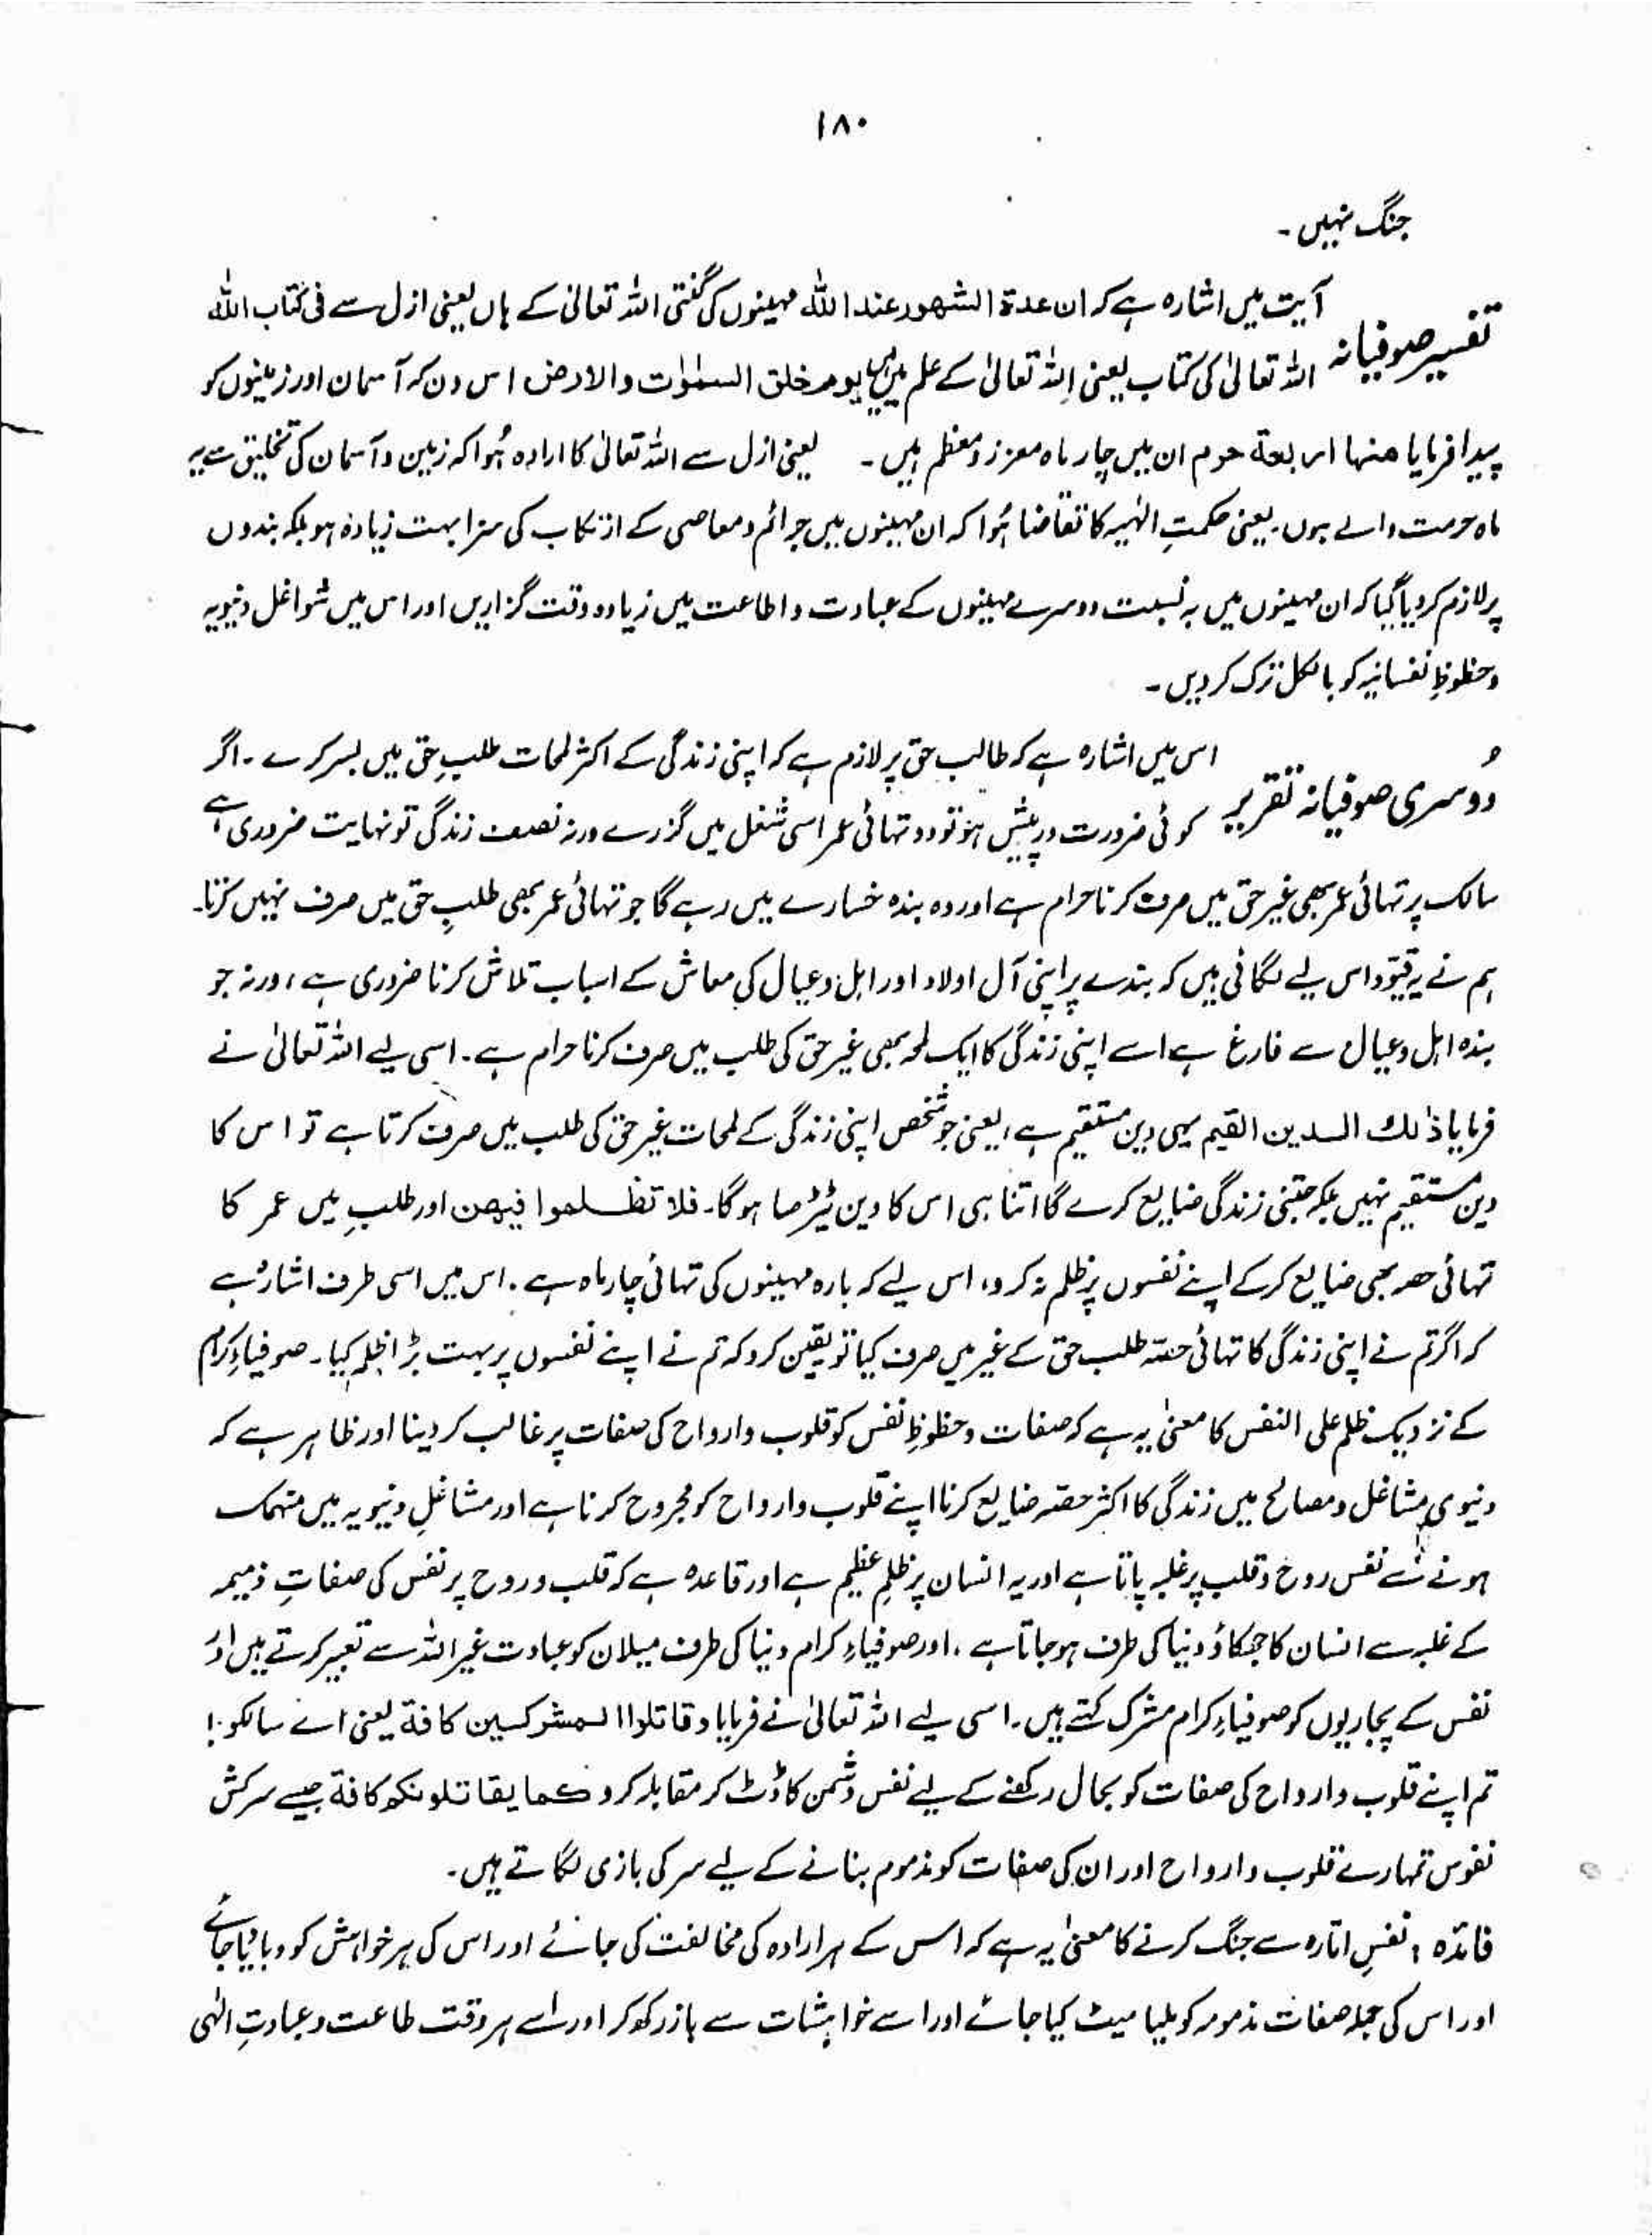 ۱۸۰
جنگ نہیں ۔
تفسیر صوفیانہ
آیت میں اشارہ ہے کہ ان عدۃ الشھور عند اللہ مہینوں کی گنتی اللہ تعالیٰ کے ہاں یعنی ازل سے فی کتاب اللہ
اللہ تعالیٰ کی کتاب یعنی اللہ تعالیٰ کے علم میں یوم خلق السمٰوٰت والارض اس دن کہ آسمان اور زمینوں کو
پیدا فرمایا منہا اربعۃ حرم ان میں چار ماہ معزز و معظم ہیں ۔ یعنی ازل سے اللہ تعالیٰ کا ارادہ ہُوا کہ زمین و آسمان کی تخلیق سے یہ
ماہ حرمت والے ہوں۔ یعنی حکمتِ الٰہیہ کا تقاضا ہُوا کہ ان مہینوں میں جرائم و معاصی کے ارتکاب کی سزا بہت زیادہ ہو بلکہ بندوں
پر لازم کر دیا گیا کہ ان مہینوں میں بہ نسبت دوسرے مہینوں کے عبادت و اطاعت میں زیادہ وقت گزاریں اور اس میں شواغل دنیویہ
و حظوظِ نفسانیہ کو بالکل ترک کر دیں ۔
دُوسری صوفیانہ تقریر
اس میں اشارہ ہے کہ طالب حق پر لازم ہے کہ اپنی زندگی کے اکثر لمحات طلبِ حق میں بسر کرے ۔ اگر
کوئی ضرورت درپیش ہو تو دو تہائی عمر اسی شغل میں گزرے ورنہ نصف زندگی تو نہایت ضروری ہے
سالک پر تہائی عمر بھی غیر حق میں صرف کرنا حرام ہے اور وہ بندہ خسارے میں رہے گا جو تہائی عمر بھی طلبِ حق میں صرف نہیں کرتا۔
ہم نے یہ قیود اس لیے لگائی ہیں کہ بندے پر اپنی آل اولاد اور اہل و عیال کی معاش کے اسباب تلاش کرنا ضروری ہے ، ورنہ جو
بندہ اہل و عیال سے فارغ ہے اسے اپنی زندگی کا ایک لمحہ بھی غیر حق کی طلب میں صرف کرنا حرام ہے ۔ اسی لیے اللہ تعالیٰ نے
فرمایا ذٰلک الدین القیم یہی دین مستقیم ہے ، یعنی جو شخص اپنی زندگی کے لمحات غیر حق کی طلب میں صرف کرتا ہے تو اس کا
دین مستقیم نہیں بلکہ جتنی زندگی ضایع کرے گا اتنا ہی اس کا دین ٹیڑھا ہو گا۔ فلا تظلموا فیہن اور طلبِ میں عمر کا
تہائی حصہ بھی ضایع کر کے اپنے نفسوں پر ظلم نہ کرو، اس لیے کہ بارہ مہینوں کی تہائی چار ماہ ہے ۔ اس میں اسی طرف اشارہ ہے
کہ اگر تم نے اپنی زندگی کا تہائی حصّہ طلب حق کے غیر میں صرف کیا تو یقین کرو کہ تم نے اپنے نفسوں پر بہت بڑا ظلم کیا۔ صوفیاءِ کرام
کے نزدیک ظلم علی النفس کا معنیٰ یہ ہے کہ صفات و حظوظِ نفس کو قلوب و ارواح کی صفات پر غالب کر دینا اور ظاہر ہے کہ
دنیوی مشاغل و مصالح میں زندگی کا اکثر حصّہ ضایع کرنا اپنے قلوب و ارواح کو مجروح کرنا ہے اور مشاغلِ دنیویہ میں منہمک
ہونے سے نفس روح و قلب پر غلبہ پاتا ہے اور یہ انسان پر ظلمِ عظیم ہے اور قاعدہ ہے کہ قلب و روح پر نفس کی صفاتِ ذمیمہ
کے غلبہ سے انسان کا جھکاؤ دنیا کی طرف ہو جاتا ہے ۔ اور صوفیاءِ کرام دنیا کی طرف میلان کو عبادت غیر اللہ سے تعبیر کرتے ہیں اور
نفس کے پجاریوں کو صوفیاءِ کرام مشرک کہتے ہیں ۔ اسی لیے اللہ تعالیٰ نے فرمایا وقاتلوا المشرکین کافۃ یعنی اے سالکو !
تم اپنے قلوب و ارواح کی صفات کو بحال رکھنے کے لیے نفس دشمن کا ڈٹ کر مقابلہ کرو کما یقاتلونکم کافۃ جیسے سرکش
نفوس تمہارے قلوب و ارواح اور ان کی صفات کو مذموم بنانے کے لیے سر کی بازی لگاتے ہیں ۔
فائدہ : نفسِ امّارہ سے جنگ کرنے کا معنیٰ یہ ہے کہ اس کے ہر ارادہ کی مخالفت کی جائے اور اس کی ہر خواہش کو دبایا جائے
اور اس کی جملہ صفات مذمومہ کو ملیا میٹ کیا جائے اور اسے خواہشات سے باز رکھ کر اور اسے ہر وقت طاعت و عبادتِ الٰہی